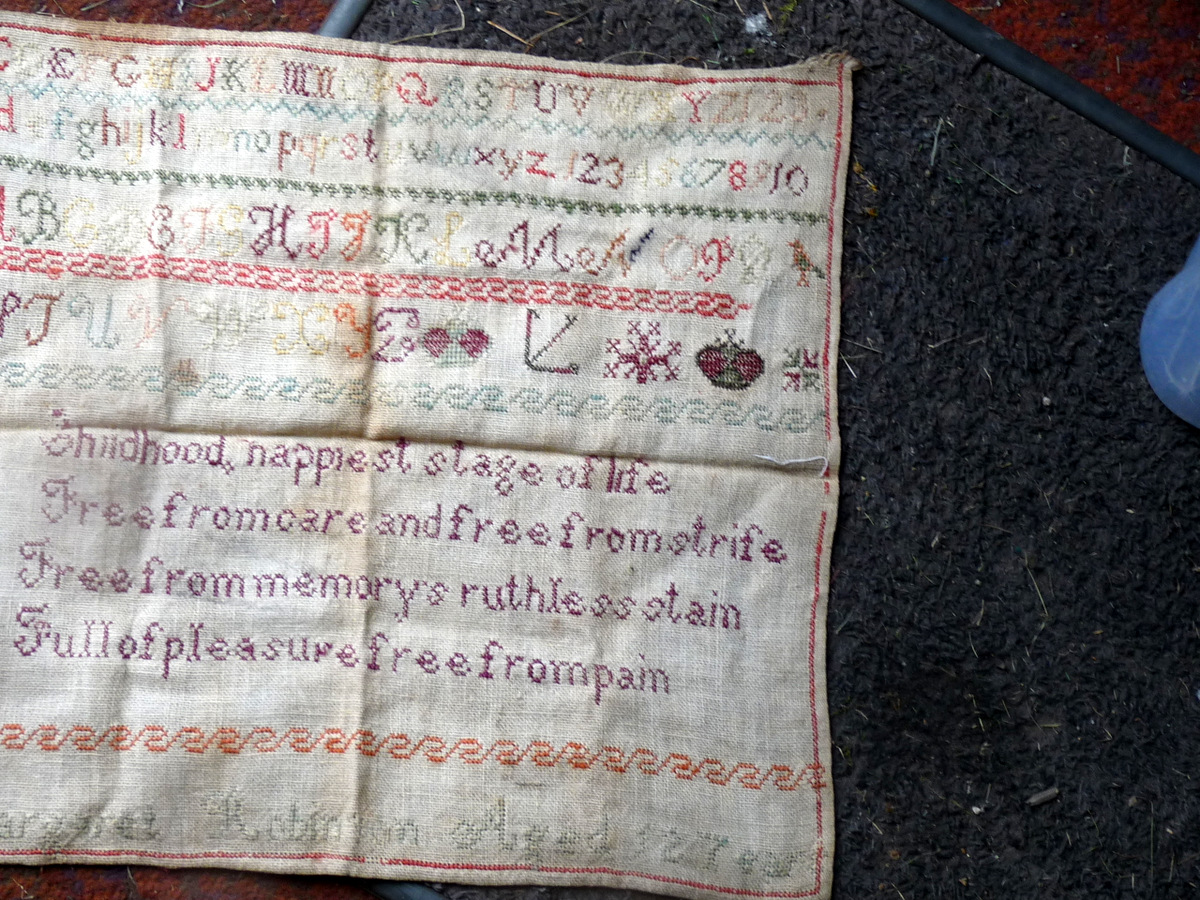 C E F G H J K L M N O P Q R S T U V W X Y Z 1 2 3
d e f g h i j k l m n o p q r s t u v w x y z 1 2 3 4 5 6 7 8 9 10
A B C D E F G H I J K L M N O P
T U V W X Y Z
Childhood, happiest stage of life
Free from care and free from strife
Free from memorys ruthless stain
Full of pleasure free from pain
Margaret Robinson Aged 12